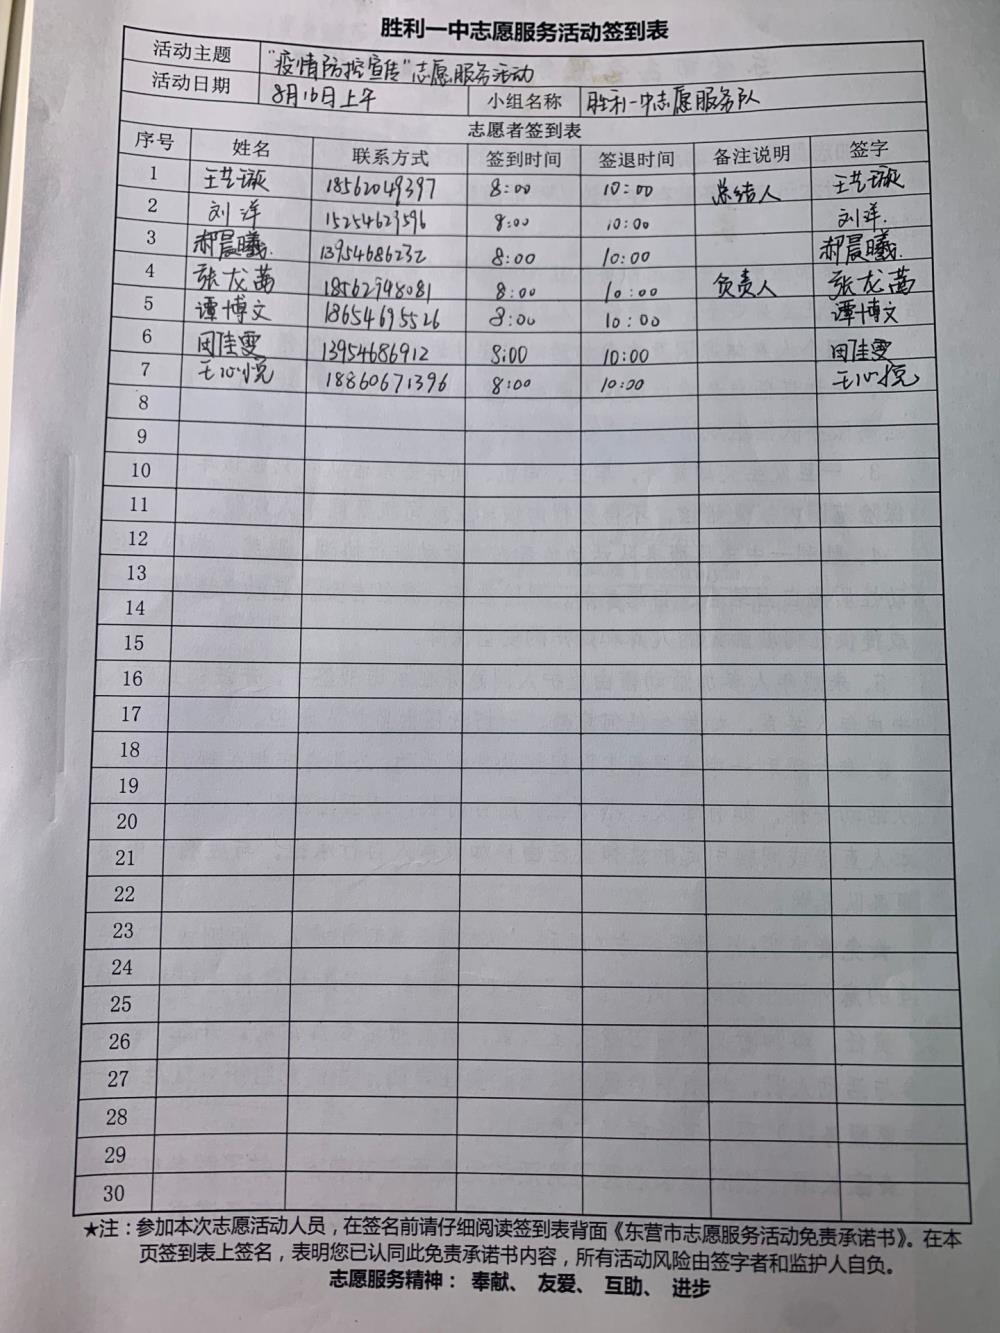 胜利一中志愿服务活动签到表
活动主题 “疫情防控宣传”志愿服务活动
活动日期 8月16日上午 小组名称 胜利一中志愿服务队
志愿者签到表
序号 姓名 联系方式 签到时间 签退时间 备注说明 签字
1 王艺璇 18562049397 8:00 10:00 总结人 王艺璇
2 刘洋 15254623596 8:00 10:00 刘洋.
3 郝晨曦. 13954686232 8:00 10:00 郝晨曦.
4 张龙茜 18562948081 8:00 10:00 负责人 张龙茜
5 谭博文 18654695526 8:00 10:00 谭博文
6 田佳雯 13954686912 8:00 10:00 田佳雯
7 王心悦 18860671396 8:00 10:00 王心悦
8
9
10
11
12
13
14
15
16
17
18
19
20
21
22
23
24
25
26
27
28
29
30
★注：参加本次志愿活动人员，在签名前请仔细阅读签到表背面《东营市志愿服务活动免责承诺书》。在本
页签到表上签名，表明您已认同此免责承诺书内容，所有活动风险由签字者和监护人自负。
志愿服务精神： 奉献、 友爱、 互助、 进步